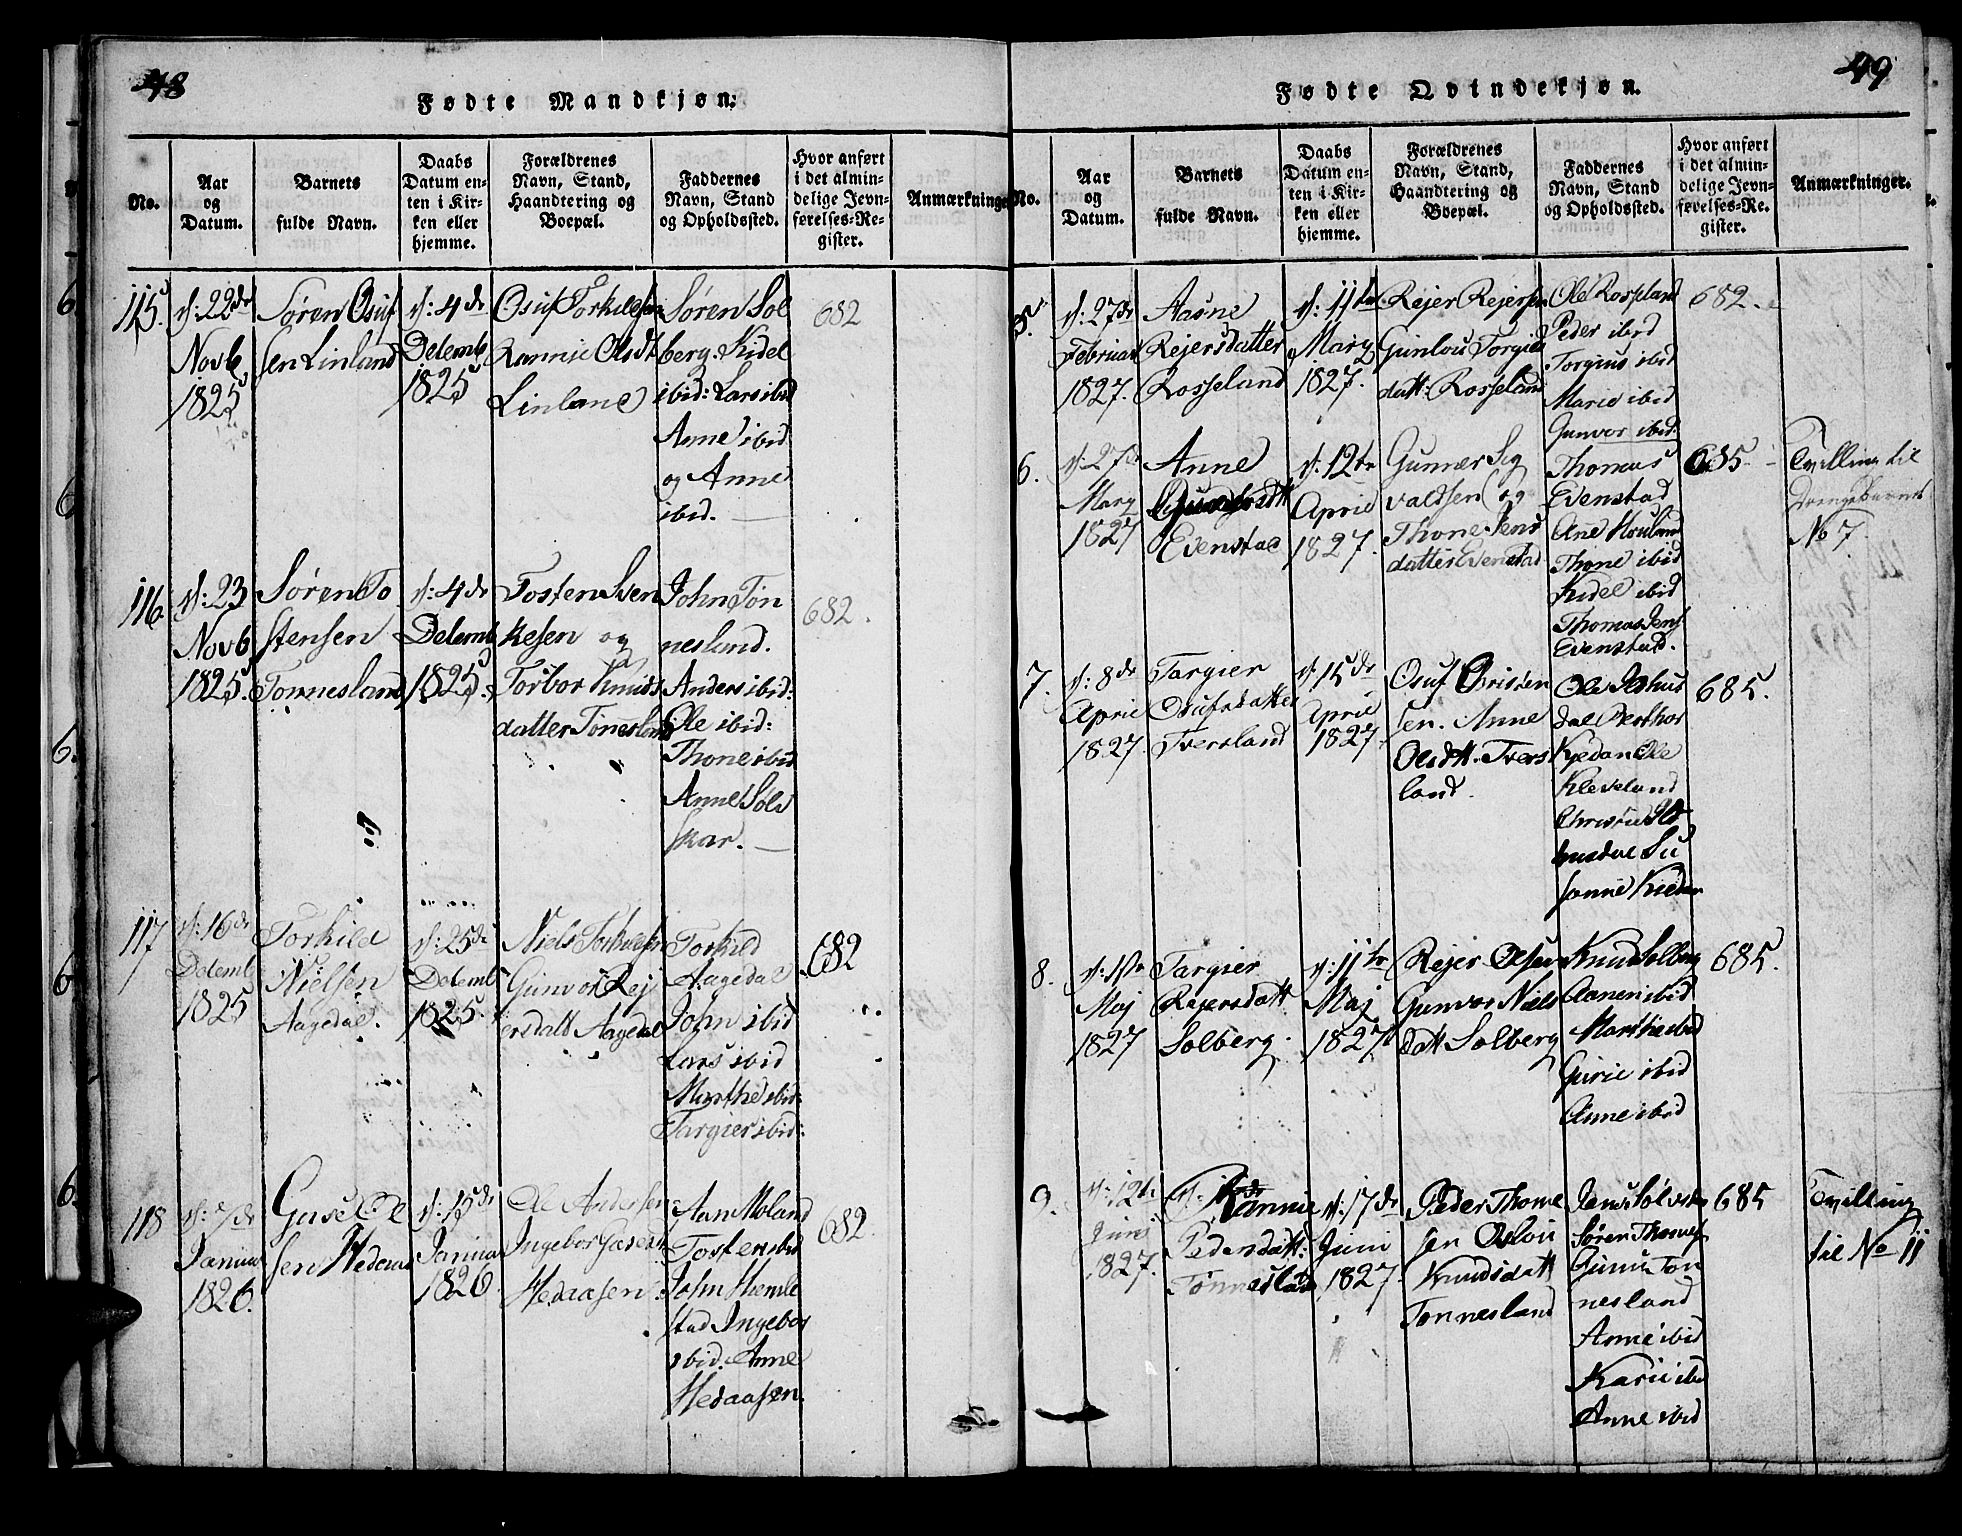 48
Fødte Mandkjøn.
No.
Aar
og
Datum.
Barnets
fulde Navn.
Daabs
Datum en-
ten i Kir-
ken eller
hjemme.
Forældrenes
Navn, Stand,
Haandtering og
Boepæl.
Faddernes
Navn, Stand
og Opholdssted.
Hvor anført
i det almin-
delige Jevn-
førelses-Re-
gister.
Anmærkninger
115.
d: 22de
Novb
1825
Søren Osuf
sen Linland
d: 4de
Decemb
1825
Osuf Torkildsen
Rannie Olsdt
Linland
Søren Sol
berg. Kidel
ibid: Lars ibid
Anne ibid
og Anne
ibid.
682
116
d: 23
Novb
1825.
Søren To
stensen
Tonnesland
d: 4de
Decemb
1825.
Tosten Sven
kesen og
Torbor Knuds
datter Tonesland
John Tón
nesland.
Anders ibid:
Ole ibid:
Thone ibid
Anne Solv
skar.
682.
117
d: 16de
Decemb
1825
Torkild
Nielsen
Aagedal.
d: 25de
Decemb
1825.
Niels Torkildsen
Gunvor Rej
ersdatt Aagedal
Torkild
Aagedal
John ibid
Lars ibid
Marthe ibid:
Targier ibid:
682
118
d: 7de
Januar
1826.
Gase Ol
sen Hedaas
d: 15de
Januar
1826
Ole Andersen
Ingebor Gasesd
Hedaasen
Aan Moland
Tosten ibid
John Homle
stad Ingebor
ibid. Anne
Hedaasen.
682.
49
Fødte Qvindekjøn.
No.
Aar
og
Datum.
Barnets
fulde Navn.
Daabs
Datum en-
ten i Kir-
ken eller
hjemme.
Forældrenes
Navn, Stand,
Haandtering og
Boepæl.
Faddernes
Navn, Stand
og Opholdssted.
Hvor anført
i det almin-
delige Jevn-
førelses-Re-
gister.
Anmærkninger.
5.
d: 27de
Februar
1827.
Aasne
Rejersdatter
Rosseland
d: 11te
Marz
1827.
Rejer Rejersen
Gunlou Torgies
datt: Rosseland
Ole Rosseland
Peder ibid
Torgius ibid
Marie ibid
Gunvor ibid:
682.
6.
d: 27de
Marz
1827
Anne
Gunersdatt
Evenstad
d: 12te
April
1827.
Gunner Sig
valdsen og
Thone Jens
datter Evenstad
Thomas
Evenstad
Ane
Thone ibid
Kidel ibid
Thomas Jens
Evenstad.
685.
Tvilling til
Drengebarnet
No 7.
7.
d: 8de
April
1827.
Targier
Osufsdatter
Tversland
d: 15de
April
1827.
Osuf Christen
sen. Anne
Olsdtt. Tvers
land.
Ole
dal
Kjedan Ole
Kleveland
Christie
husdal Su
sanne Kiedan
685.
8.
d: 1ste
Maj
1827
Targier
Rejersdatt
Solberg.
d: 11te
Maj
1827
Rejer Olsen
Gunvor Niels
datt Solberg
Knud Solberg
Aanen ibid
Marthe ibid
Gurie ibid
Anne ibid
685.
9.
d: 12te
Juni
1827.
Rannie
Pedersdatt:
Tonnesland
d: 17de
Juni
1827.
Peder Thome
sen Oslou
Knudsdatt
Tonnesland
Jens Sølvsk
Søren Thomes
Ton
nesland
Anne ibid
Karie ibid
Anne ibid
685
Tvilling
til No 11